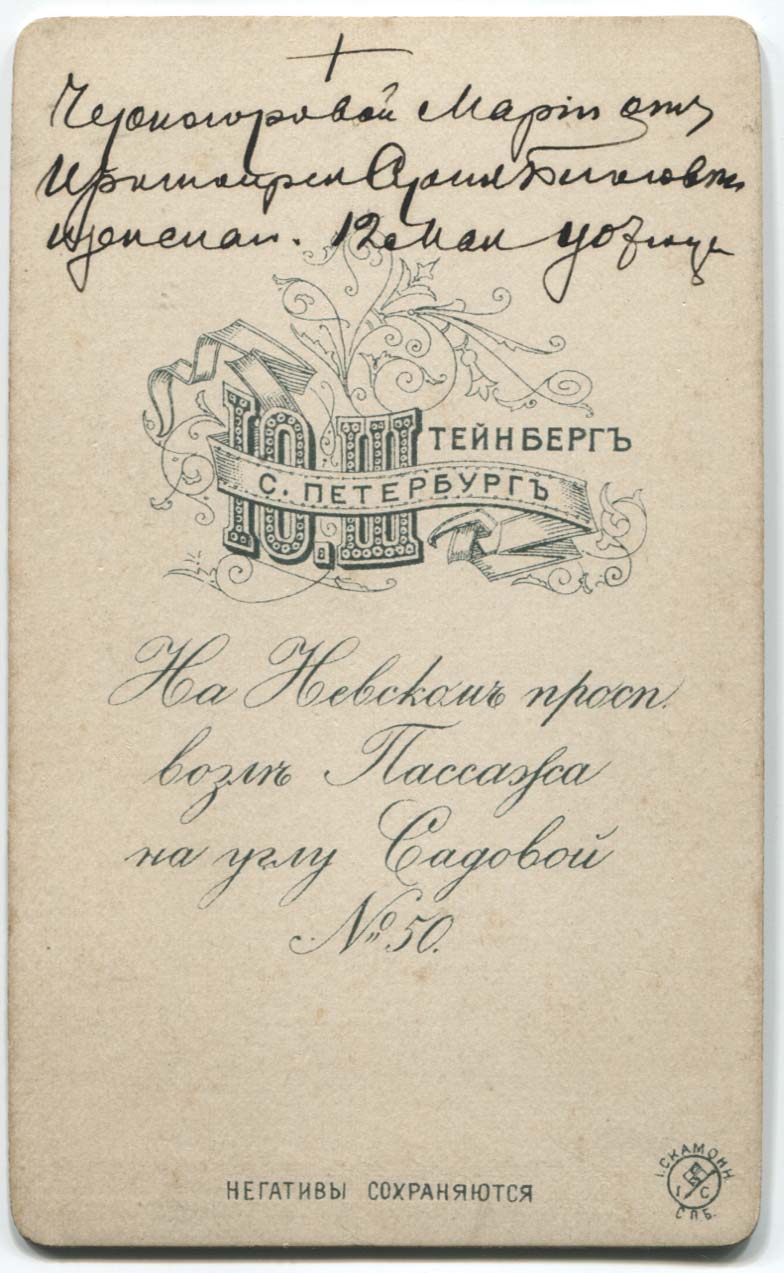 Черногоровой Маріи отъ
12 Мая
Ю. ШТЕЙНБЕРГЪ
С. ПЕТЕРБУРГЪ
На Невскомъ просп.
возлѣ Пассажа
на углу Садовой
№ 50.
НЕГАТИВЫ СОХРАНЯЮТСЯ
І. СКАМОНИ
І С
СПБ.